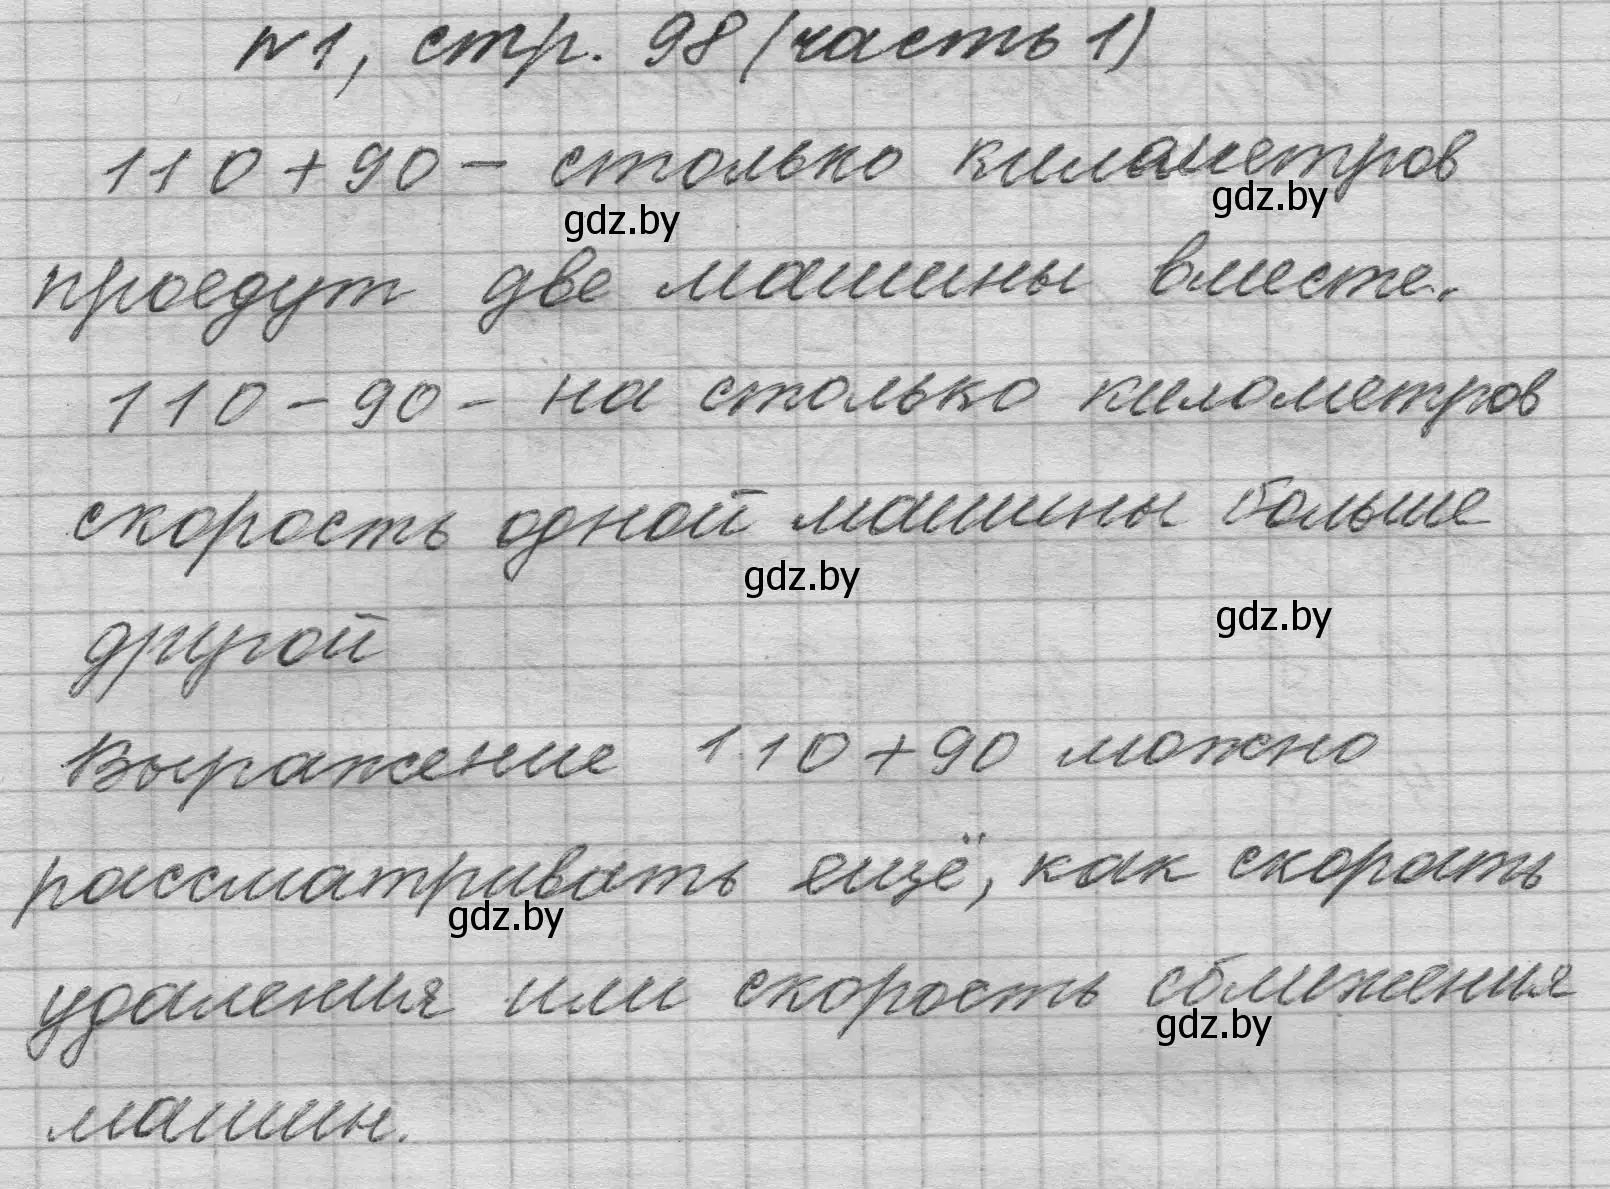 №1, стр. 98 (часть 1)
110+90 - столько километров
gdz.by
gdz.by
проедут две машины вместе.
110-90 - на столько километров
скорость одной машины больше
gdz.by
gdz.by
другой
Выражение 110+90 можно
рассматривать ещё, как скорость
gdz.by
удаления или скорость сближения
gdz.by
машин.